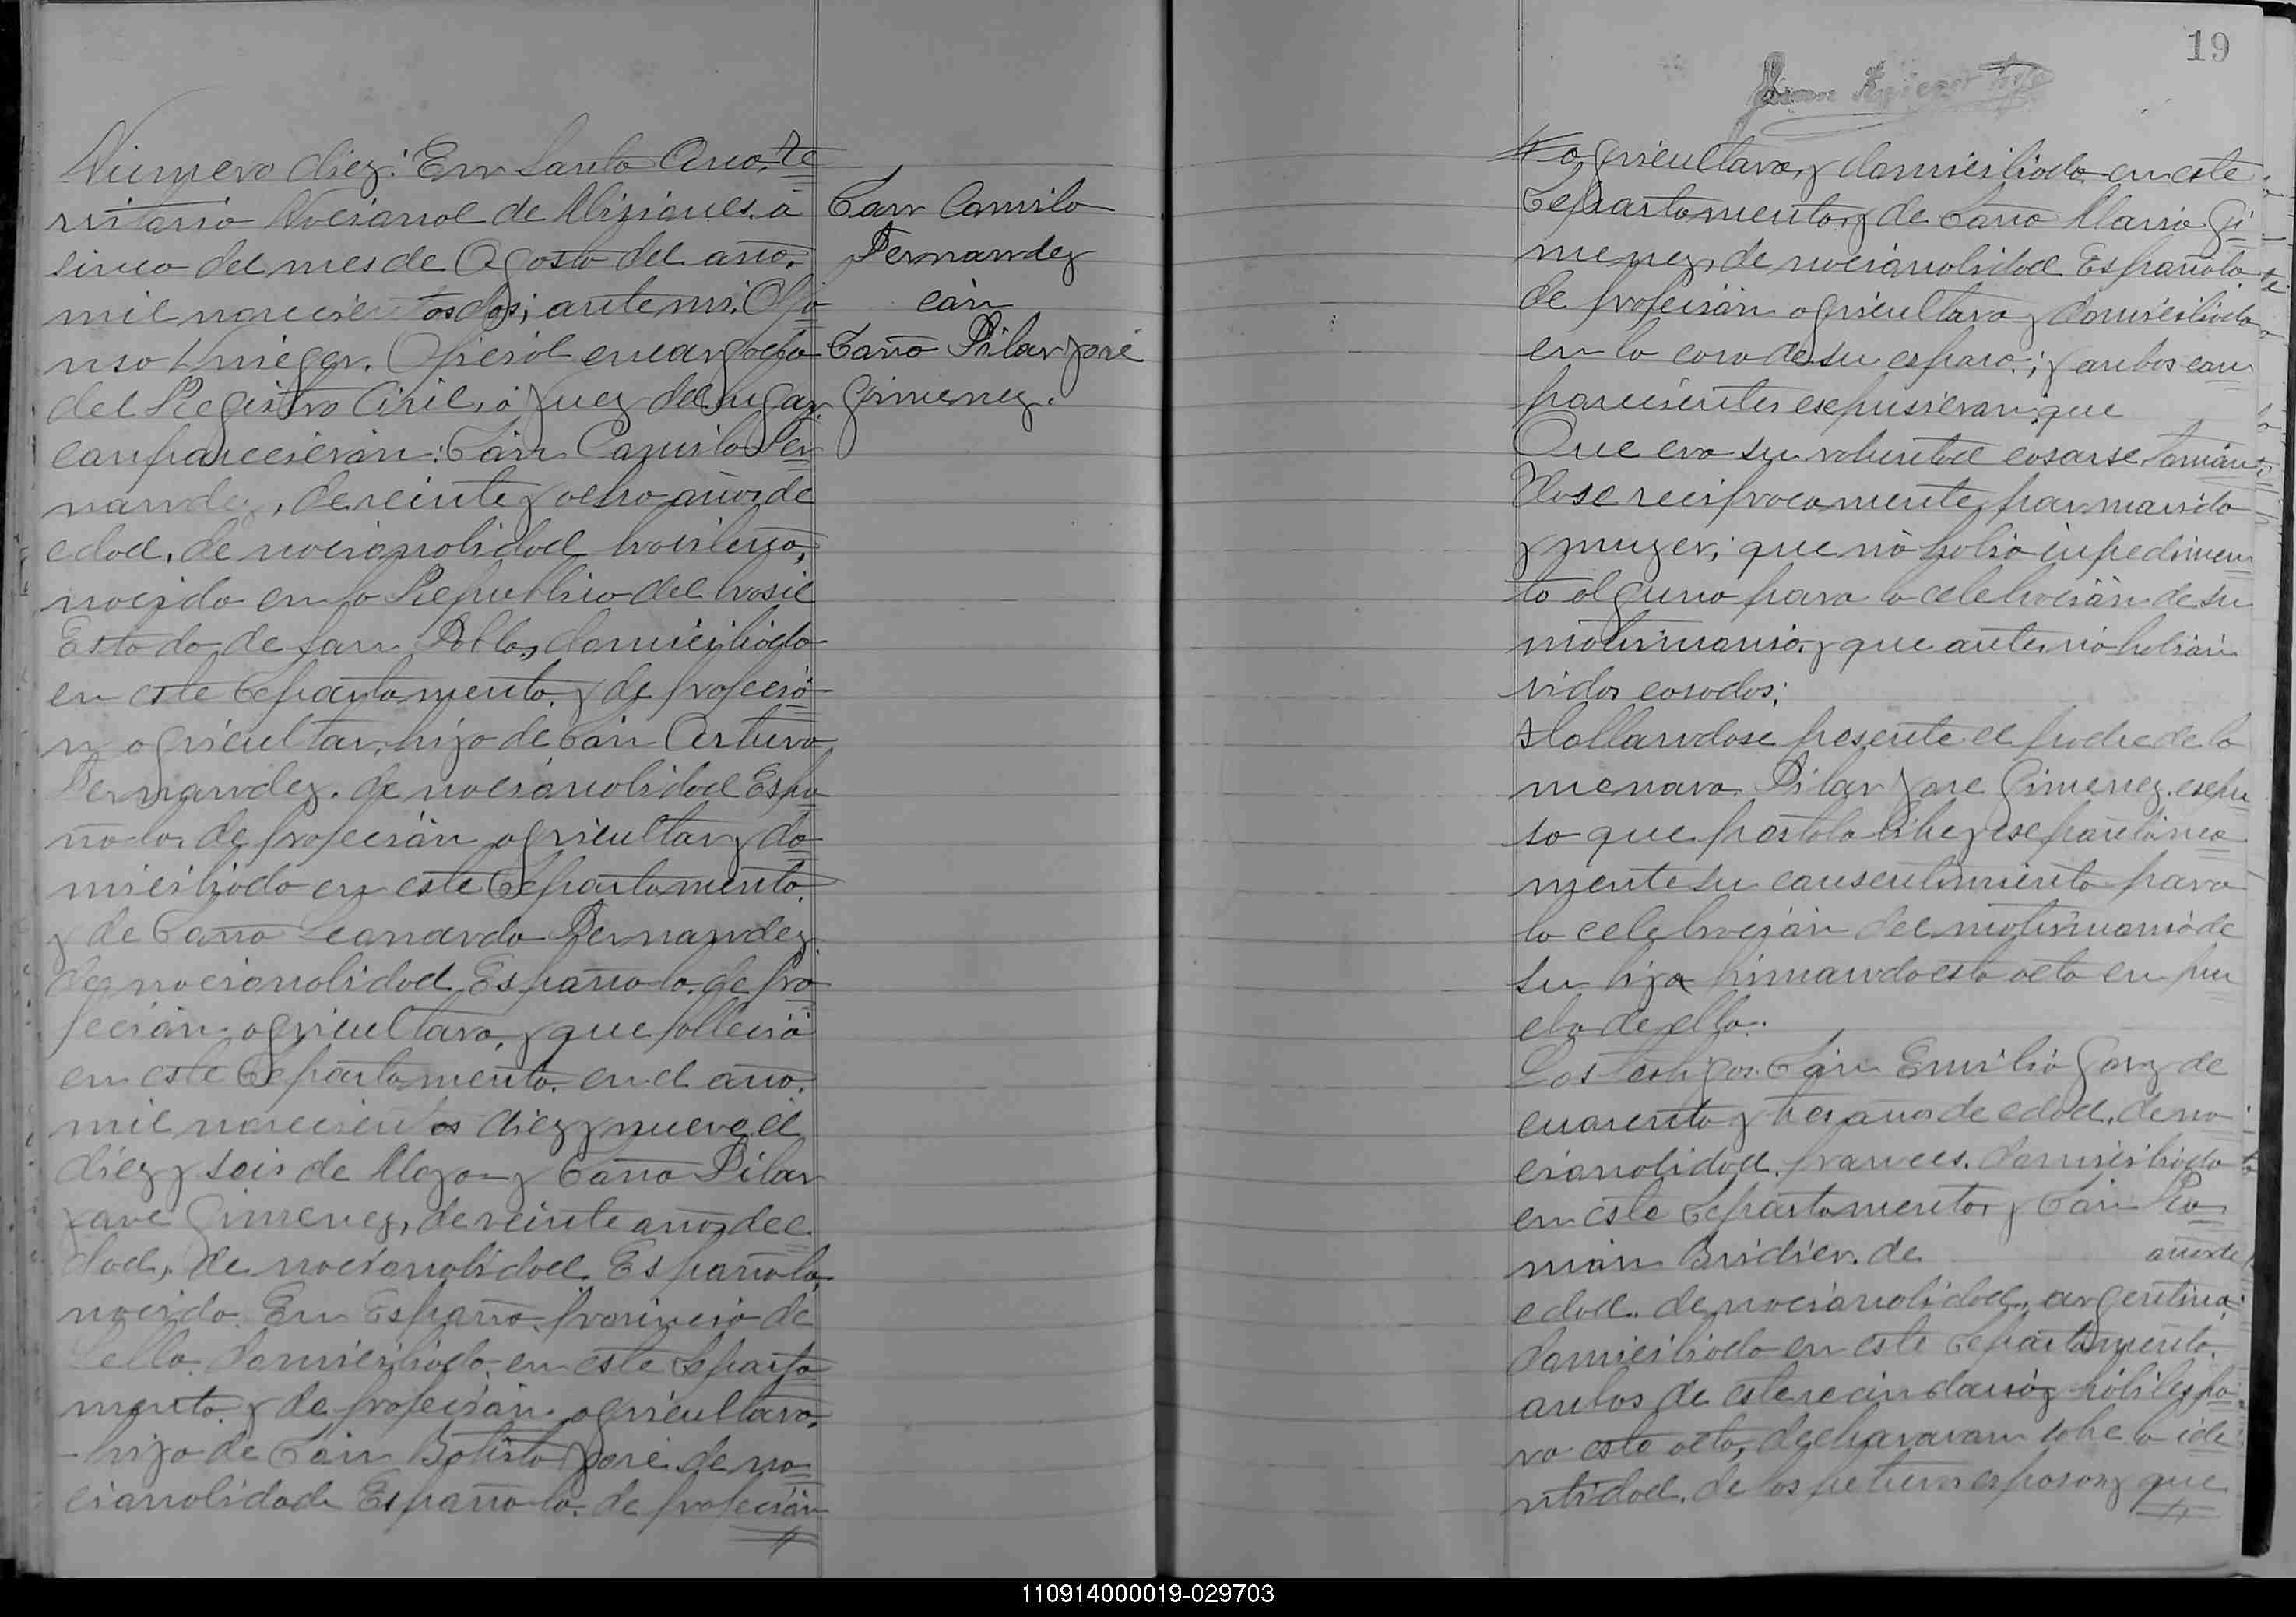 Numero diez: En Santa Ana, Te
rritorio Nocional de Misiones. a
cinco del mes de Agosto del año,
mil novecientos dos; ante mi. Alfo
nso Krieger. Oficial encargado
del Registro Civil, ó Juez del lugar.
comparecieron: Don Camilo Fer
nandez, de veinte y ocho años de
edad, de nocionalidad brosilera,
nocido en la Republica del brosil
Estado de San Pablo, domiciliado
en este Departamento. y de profesió
n agricultor, hijo de Don Arturo
Fernandez. de nocionalidad Espa
ñola, de profecion agricultor y do
miciliado en este Departamento.
y de Doña Leonarda Fernandez
de nocionalidad Española. de pro
fecion agricultora, y que fallecio
en este Departamento. en el año.
mil novecientos diez y nueve el
diez y seis de Mayo y Doña Pilar
José Gimenez, de veinte años de e
dad, de nocionalidad Española,
nocida. En España, provincia de
domiciliada, en este Departa
mento. y de profecion. agricultora,
hija de Don Batista José. de na
cionalidad Española. de profecion
Don Camilo
Fernandez
con
Doña Pilar José
Gimenez.
19
agricultora, y domiciliado en este
Departamento, y de Doña Maria Gi
menez, de nocionalidad Española
de profecion agricultora y domiciliada
en la casa de su esposo; y ambos com
parecientes expusieron, que
Que era su voluntad casarse toman
dose reciprocamente, por marido
y muger; que no habia inpedimen
to alguno para la celebracion de su
matrimonio, y que antes no habian
sidos casados;
Hallandose presente el padre de la
menora Pilar José Gimenez. espu
so que prestaba libre y espontanea
mente su consentimiento para
la celebracion del matrimonio de
su hija firmando esta acta en prue
ba de ello.
Los testigos. Don Emilio Gary de
cuarenta y tres años de edad, de na
cionalidad. frances. domiciliado
en este Departamento, y Don Ro
man Bridier. de años de
edad. de nacionalidad, argentina.
domiciliado en este Departamento.
ambos de este vecindario y habiles pa
ra este acto, declararon sobre la ide
ntidad. de los futuros esposos, y que
110914000019-029703